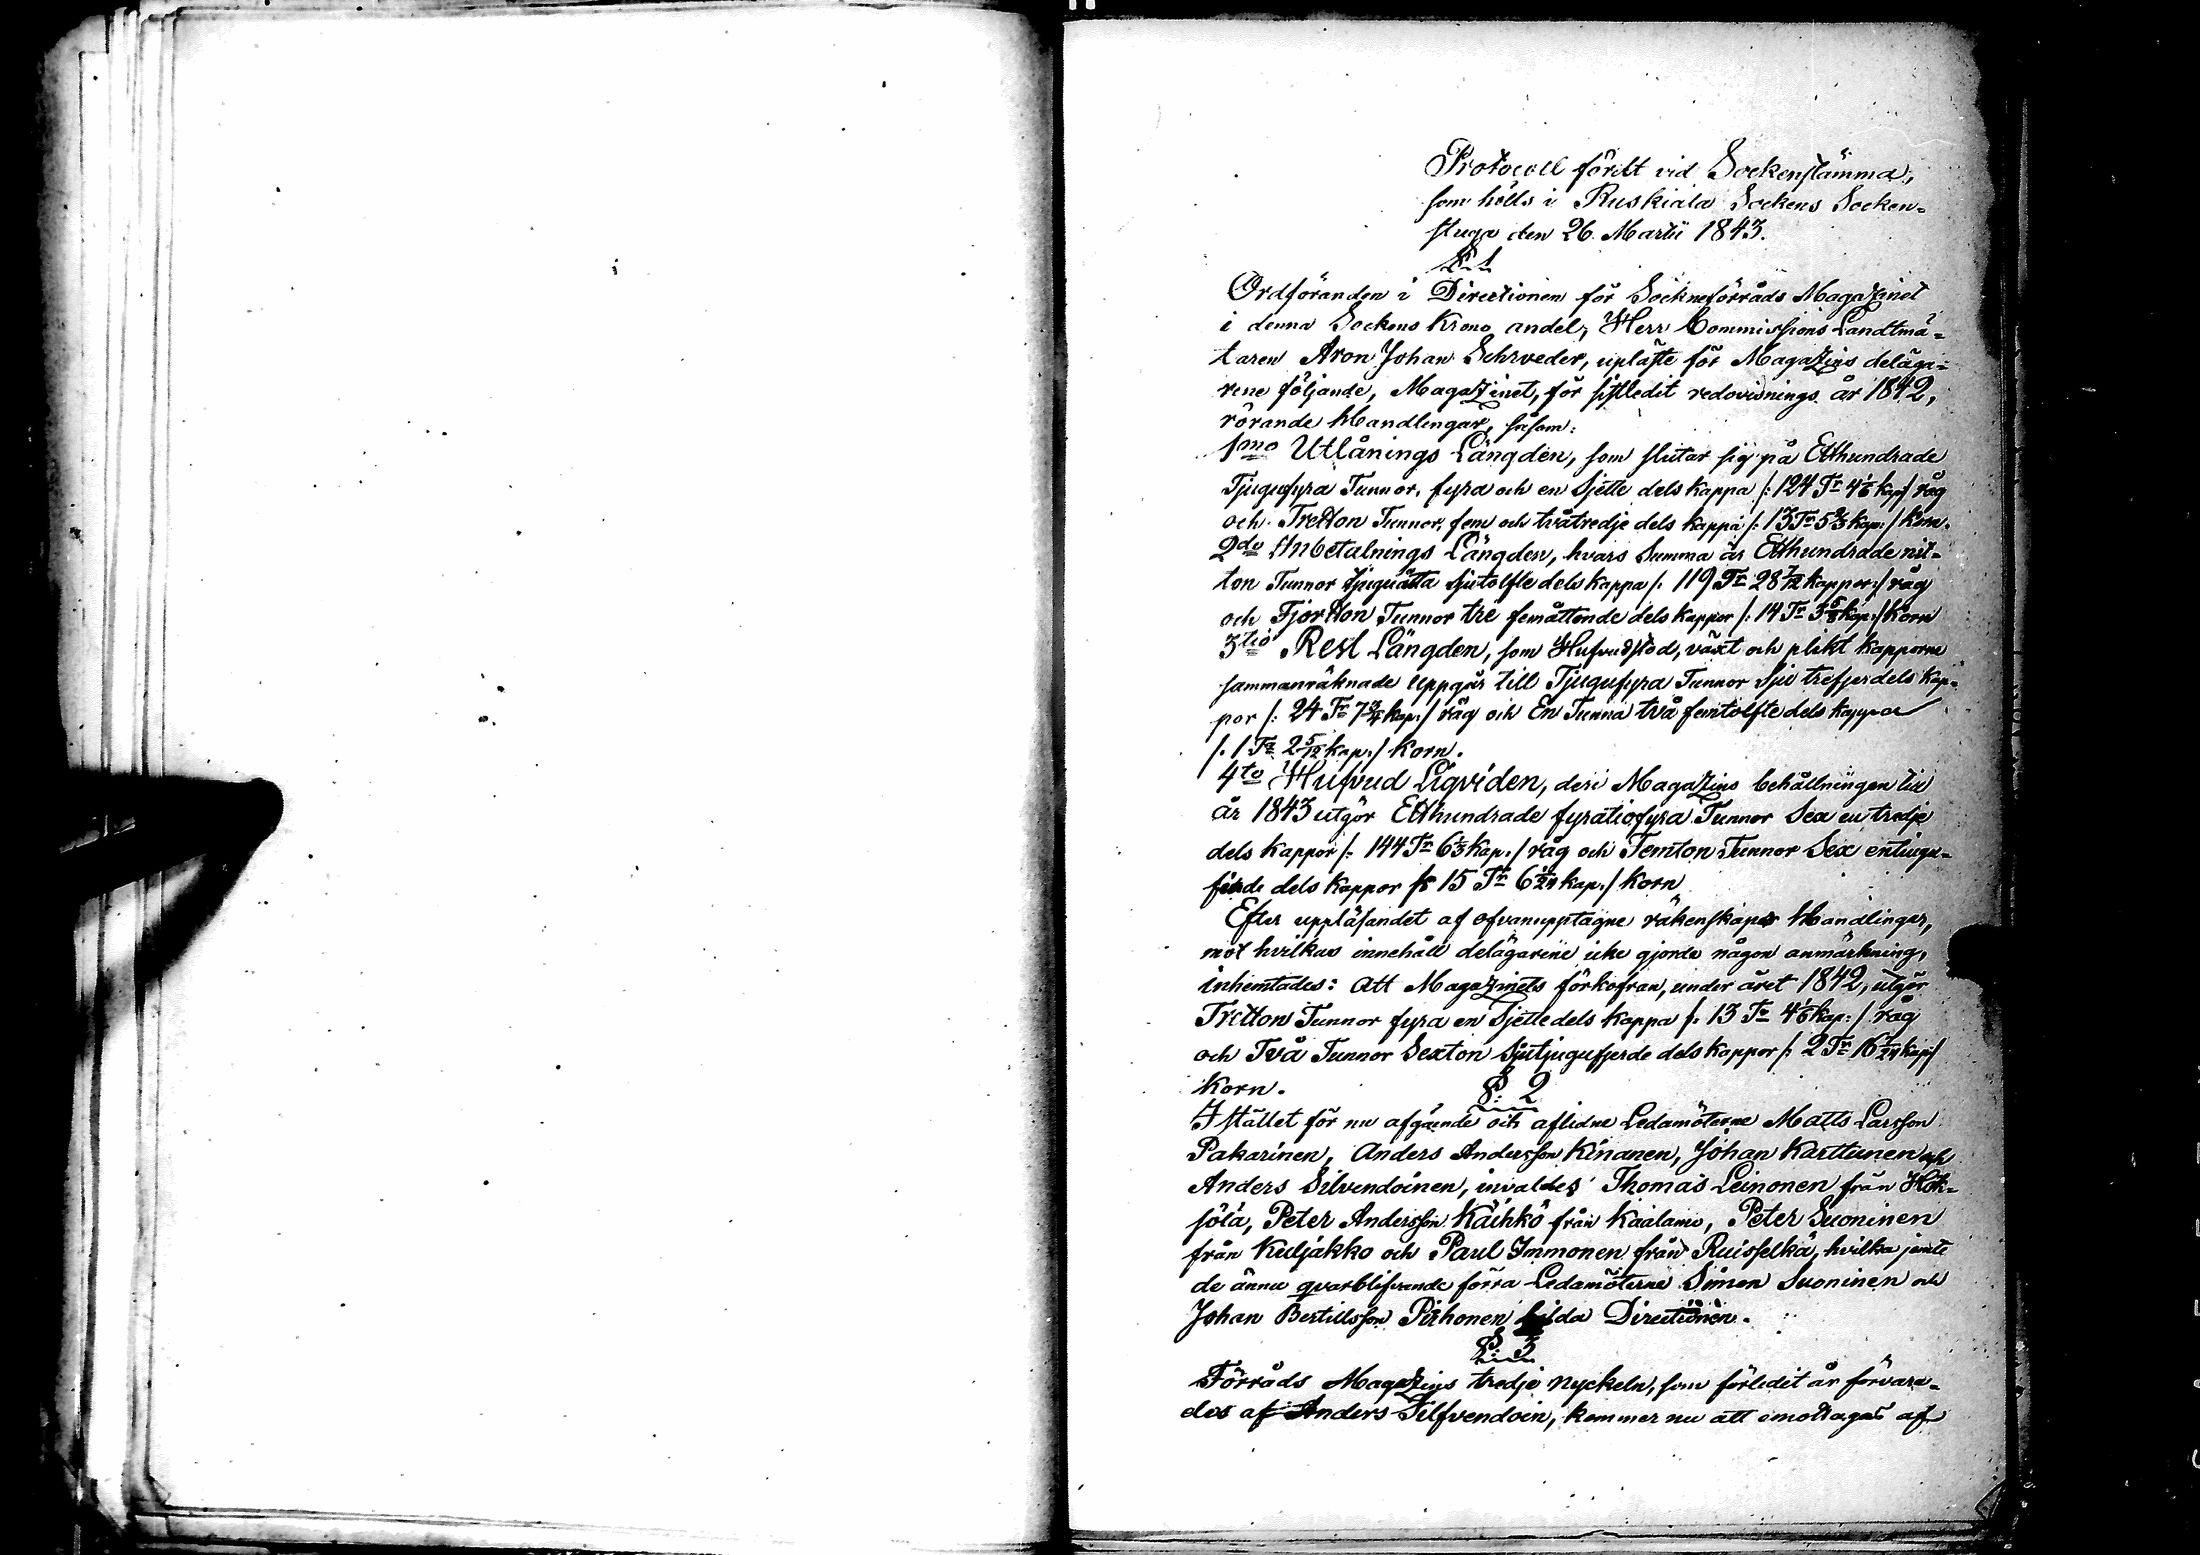 Protocoll fördt vid Sockenstämma,
som hölls i Ruskiala Sockens Socken-
stuga den 26. Martii 1843.
§. 1
Ordföranden i Directionen för Sockneförråds Magazinet
i denna Sockens Krono andel, Herr Commissions Landtmä-
taren Aron Johan Schrveder, upläste för Magazins deläga-
rene följande, Magazinet, för sistledit redovisnings år 1842,
rörande Handlingar, såsom:
1mo Utlånings Längden, som slutar sig på Etthundrade
Tjugufyra Tunnor, fyra och en sjette dels kappa /: 124 Tr 4 1/6 kap/ råg
och Tretton Tunnor, fem och tvåtredje dels kappa /: 13 Tr 5 2/3 kap:/ korn.
2do Inbetalnings Längden, hvars Summa är Etthundrade nit-
ton Tunnor tjuguåtta sjutolfte dels kappa /: 119 Tr 28 7/12 kappor:/ råg
och Fjortton Tunnor tre femåttonde dels kappor /: 14 Tr 3 5/8 kap:/ korn
3tio Rest Längden, som Hufvudstod, växt och plikt kapporne
sammanräknade uppgår till Tjugufyra Tunnor sju trefjerdels kap-
por /: 24 Tr 7 3/4 kap:/ råg och En Tunna två femtolfte dels kappor
/: 1 Tr 2 5/12 kap:/ korn.
4to Hufvud Liqviden, deri Magazins behållningen till
år 1843 utgör Etthundrade fyratiofyra Tunnor Sex en tredje
dels kappor /: 144 Tr 6 1/3 kap:/ råg och Femton Tunnor Sex entjugu-
fjerde dels kappor /: 15 Tr 6 1/24 kap:/ korn
Efter uppläsandet af ofvanupptagne räkenskaps Handlingar,
mot hvilkas innehåll delägarene icke gjorde någon anmärkning,
inhemtades: att Magazinets förkofran, under året 1842, utgör
Tretton Tunnor fyra en Sjettedels kappa /: 13 Tr 4 1/6 kap:/ råg
och Två Tunnor Sexton sjutjugufjerde dels kappor /: 2 Tr 16 7/24 kap/
korn.
§. 2
I stället för nu afgående och aflidne Ledamöterne Matts Larsson
Pakarinen, Anders Andersson Kinanen, Johan Karttunen och
Anders Silvendoinen, invaldes Thomas Leinonen från Hok-
söla, Peter Andersson Käihkö från Kaalamo, Peter Suoninen
från Kuljakko och Paul Immonen från Ruisselkä, hvilka jemte
de ännu qvarblifvande förra Ledamöterne Simon Suoninen och
Johan Bertillsson Pirhonen bilda Directionen.
§. 3
Förråds Magazins tredje nyckeln, som förledit år förvara-
des af Anders Silfvendoin, kommer nu att emottagas af